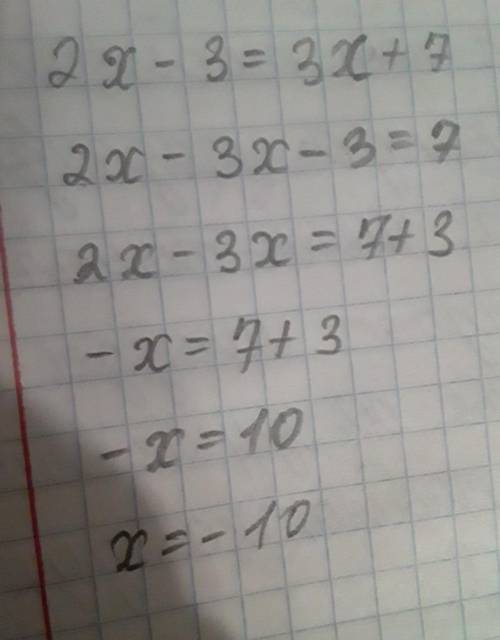 2x - 3 = 3x + 7
2x - 3x - 3 = 7
2x - 3x = 7 + 3
- x = 7 + 3
- x = 10
x = - 10